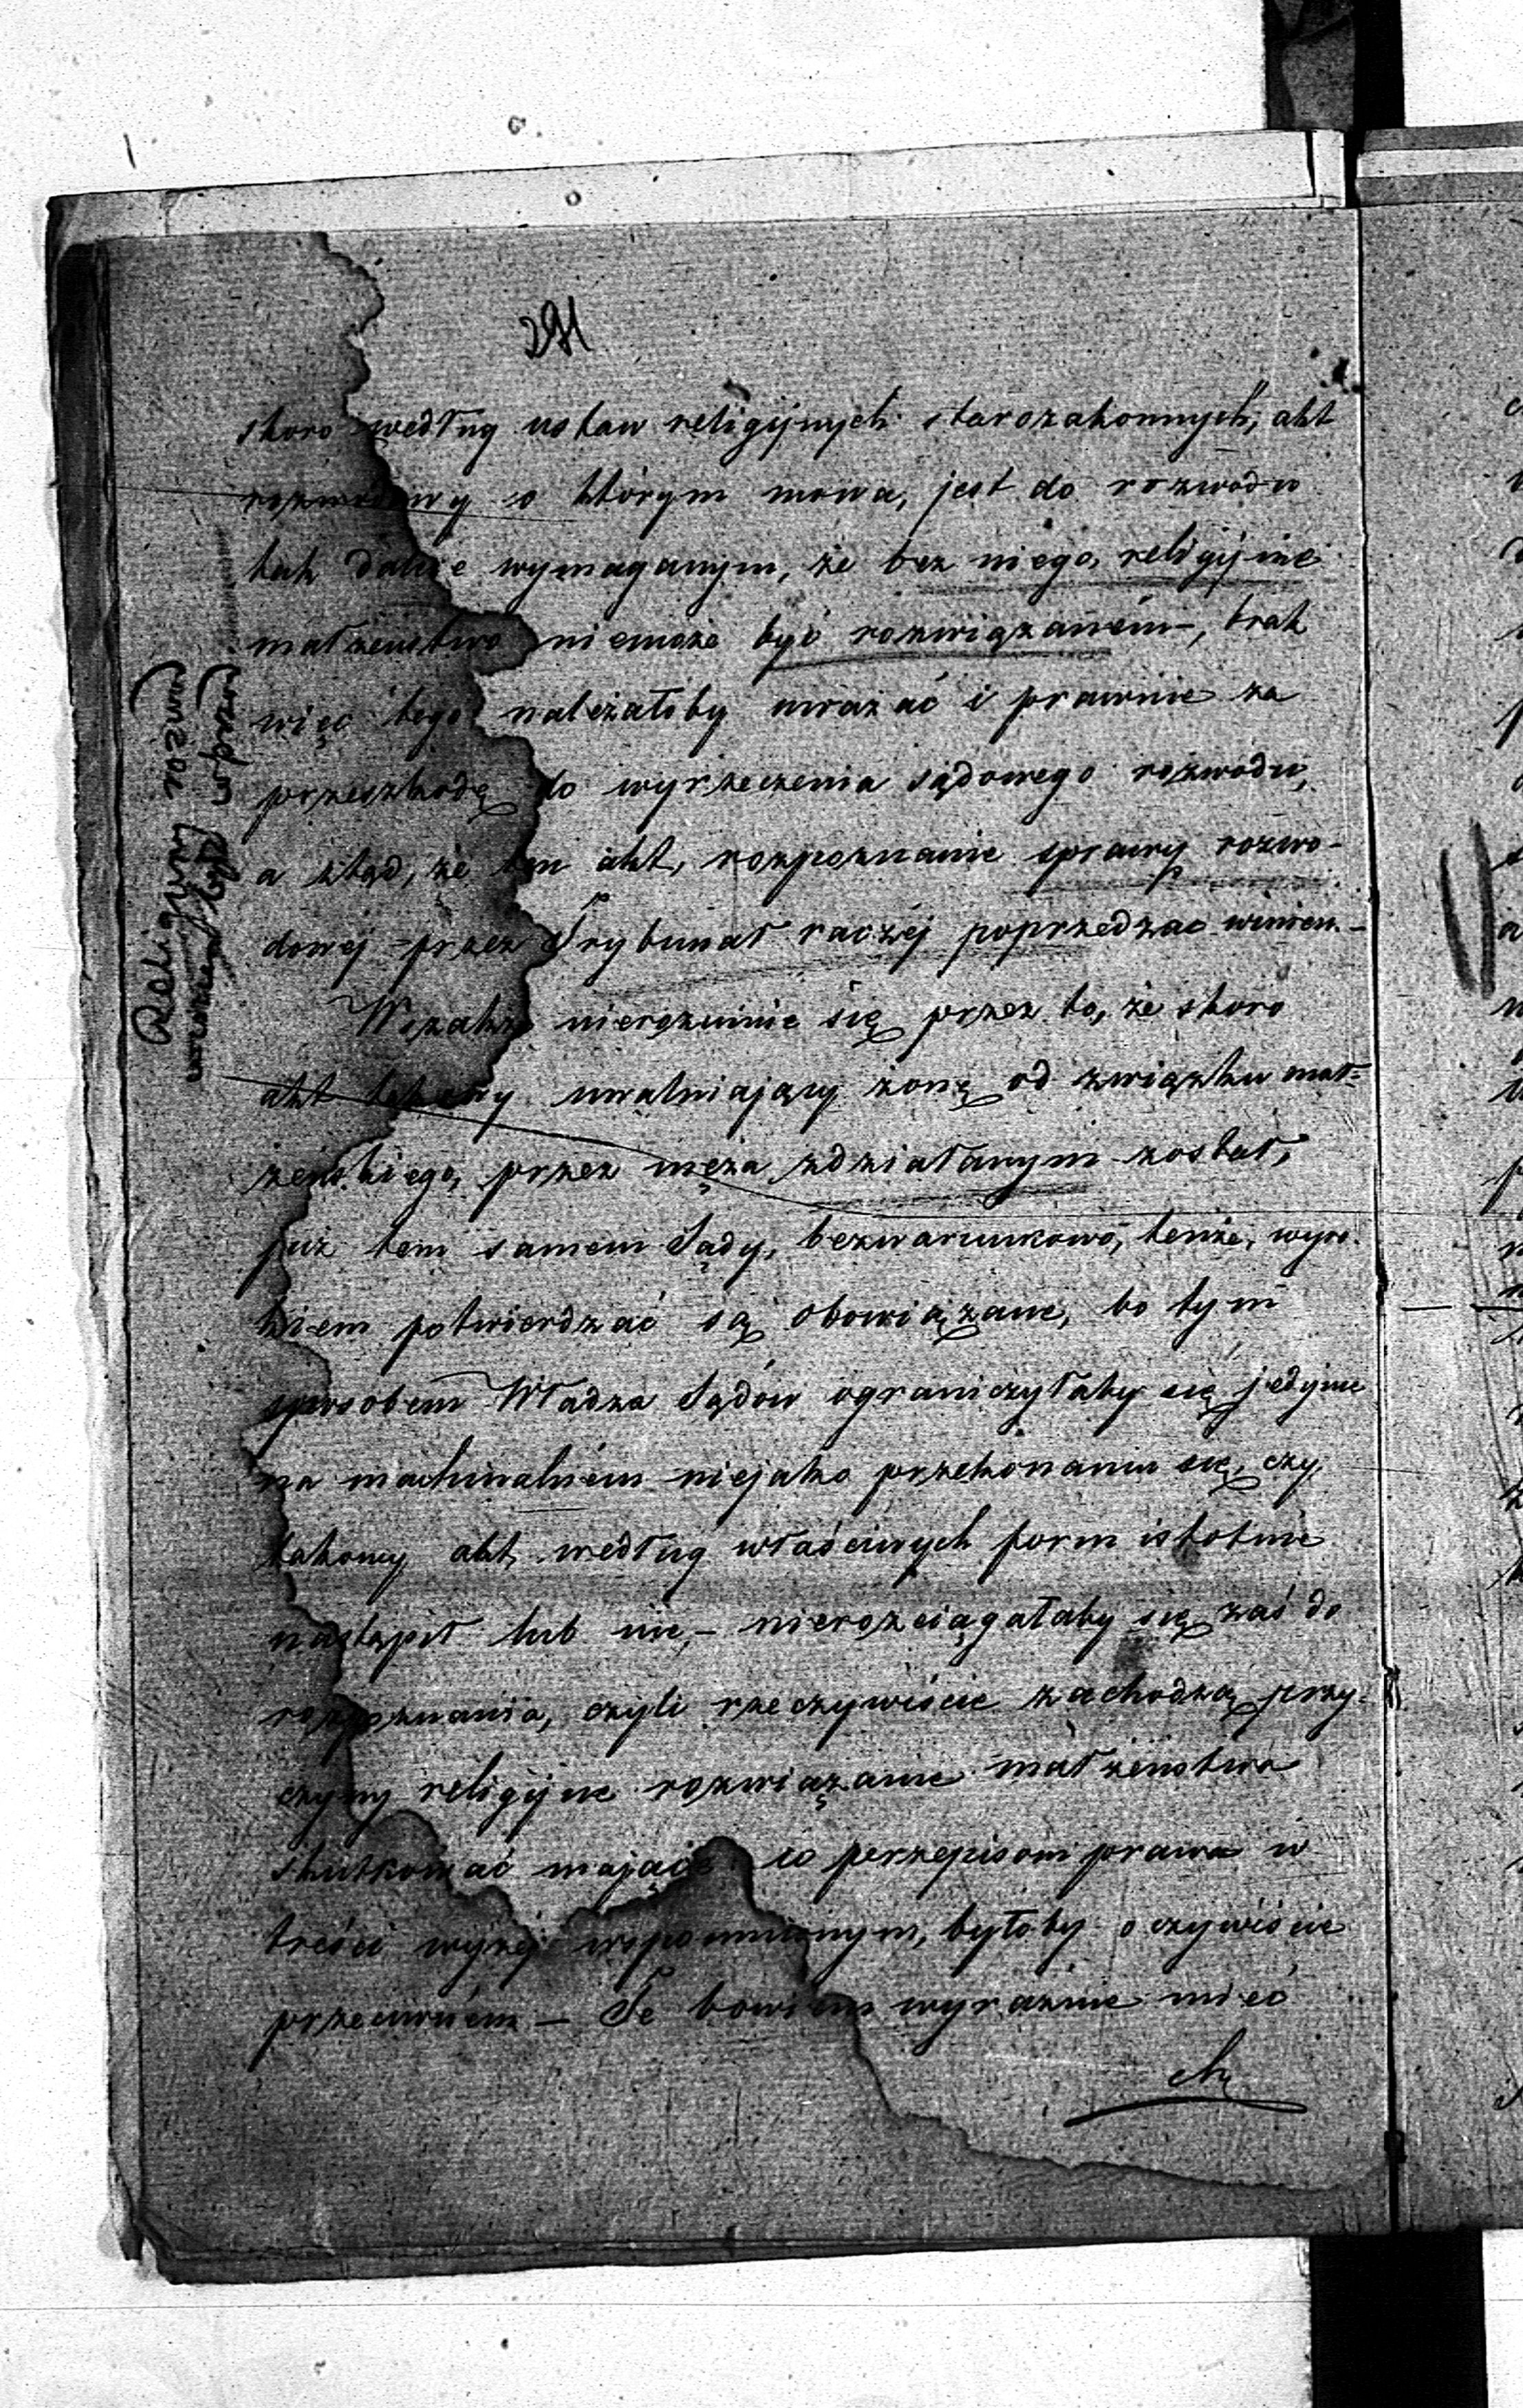 291
skoro według ustaw religijnych starozakonnych, akt
rozwodowy o którym mowa, jest do rozwodu
tak dalece wymaganym, że bez niego, religijnie
małżeństwo niemoże być rozwiązaném, brak
więc tego należałoby uważać i prawnie za
przeszkodę do wyrzeczenia sądowego rozwodu,
a ztąd, że ten akt, rozpoznanie sprawy rozwo-
dowej przez Trybunał raczéj poprzedzać winien.-
Wszakże nierozumie się przez to, że skoro
akt takowy uwalniający żonę od związku mał-
żeńskiego, przez męża zdziałanym został,
już tem samem Sądy, bezwarunkowo, tenże, wyro-
kiem potwierdzać są obowiązane, bo tym
sposobem Władza Sądów ograniczyłaby się jedynie
na machinalném niejako przekonaniu się, czy
takowy akt, według właściwych form istotnie
nastąpił lub nie,- nierozciągałaby się zaś do
rozpoznania, czyli rzeczywiście zachodzą przy-
czyny religijne rozwiązanie małżeństwa
skutkować mające co przepisom prawa w
treści wyżej wspomnionym, byłoby oczywiście
przeciwném - Te bowiem wyraźnie mieć
chą
Religijny
rozwód